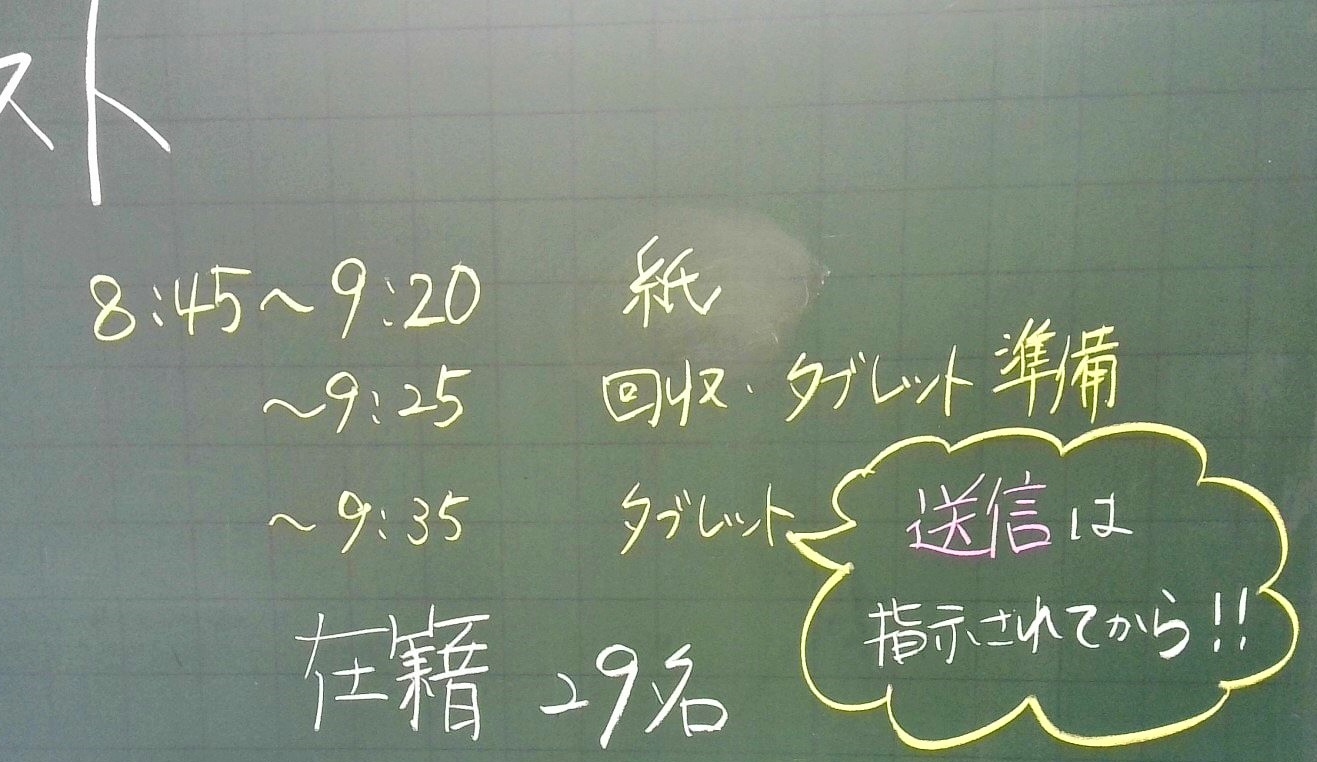 スト
8:45～9:20 紙
～9:25 回収・タブレット準備
～9:35 タブレット
送信は
指示されてから!!
在籍 29名